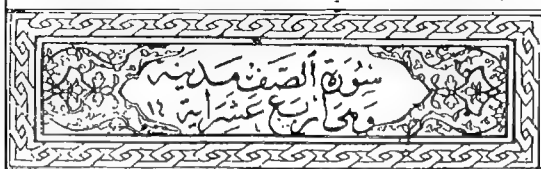 سُورَةُ الصَّفِّ مَدَنِيَّة
وَهِيَ أَرْبَع عَشَرَ آيَة ١٤